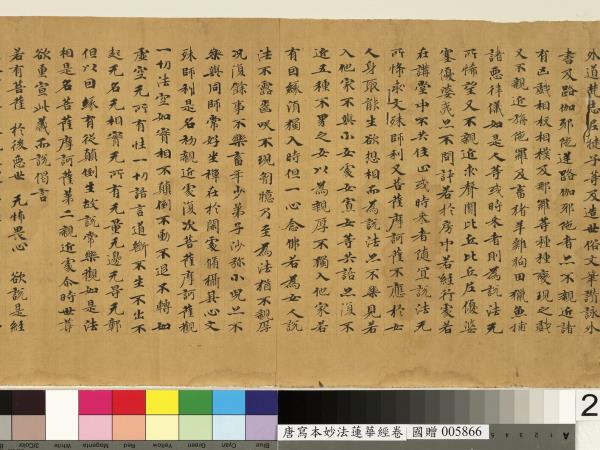 外道梵志尼揵子等及造世俗文筆讚詠外
書及路伽耶陀逆路伽耶陀者亦不親近諸
有凶戲相扠相撲及那羅等種種變現之戲
又不親近旃陀羅及畜猪羊雞狗田獵魚捕
諸惡律儀如是人等或時來者則為說法无
所悕望又不親近求聲聞比丘比丘尼優婆
塞優婆夷亦不問訊若於房中若經行處若
在講堂中不共住止或時來者隨宜說法无
所悕求文殊師利又菩薩摩訶薩不應於女
人身取能生欲想相而為說法亦不樂見若
入他家不與小女處女寡女等共語亦復不
近五種不男之人以為親厚不獨入他家若
有因緣須獨入時但一心念佛若為女人說
法不露齒咲不現匈臆乃至為法猶不親厚
況復餘事不樂畜年少弟子沙弥小兒亦不
樂與同師常好坐禪在於閑處脩攝其心文
殊師利是名初親近處復次菩薩摩訶薩觀
一切法空如實相不顛倒不動不退不轉如
虛空无所有性一切語言道斷不生不出不
起无名无相實无所有无量无邊无礙无鄣
但以因緣有從顛倒生故說常樂觀如是法
相是名菩薩摩訶薩第二親近處尒時世尊
欲重宣此義而說偈言
若有菩薩 於後惡世 无怖畏心 欲說是經
3/Color White Magenta Red Yellow Green Cyan Blue
唐寫本妙法蓮華經卷 國贈 005866
5 4 A
2